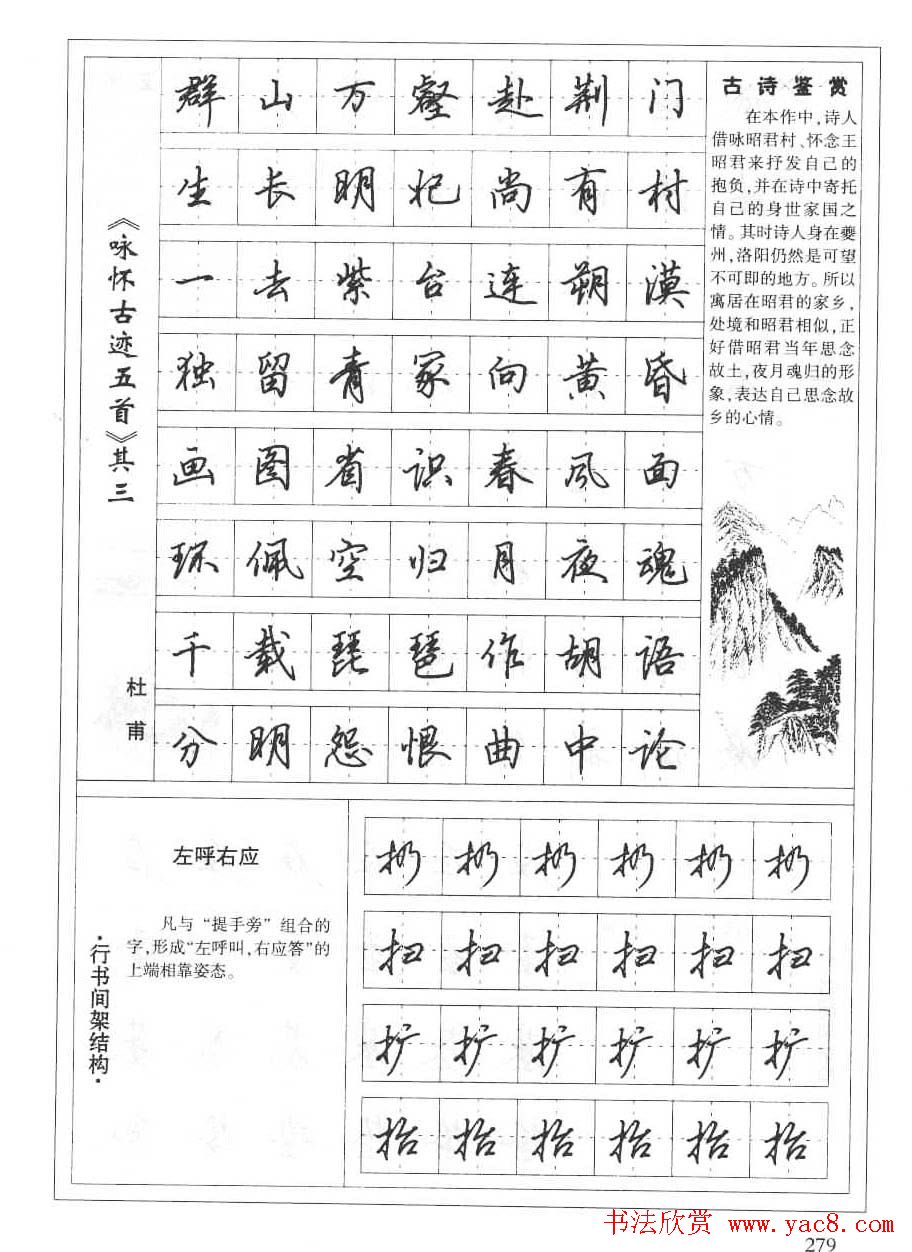 《咏怀古迹五首》其三
杜甫
群山万壑赴荆门
生长明妃尚有村
一去紫台连朔漠
独留青冢向黄昏
画图省识春风面
环佩空归月夜魂
千载琵琶作胡语
分明怨恨曲中论
古诗鉴赏
在本作中,诗人
借咏昭君村、怀念王
昭君来抒发自己的
抱负,并在诗中寄托
自己的身世家国之
情。其时诗人身在夔
州,洛阳仍然是可望
不可即的地方。所以
寓居在昭君的家乡,
处境和昭君相似,正
好借昭君当年思念
故土,夜月魂归的形
象,表达自己思念故
乡的心情。
·行书间架结构·
左呼右应
凡与“提手旁”组合的
字,形成“左呼叫,右应答”的
上端相靠姿态。
扔扔扔扔扔扔
扫扫扫扫扫扫
扩扩扩扩扩扩
抬抬抬抬抬抬
书法欣赏 www.yac8.com
279